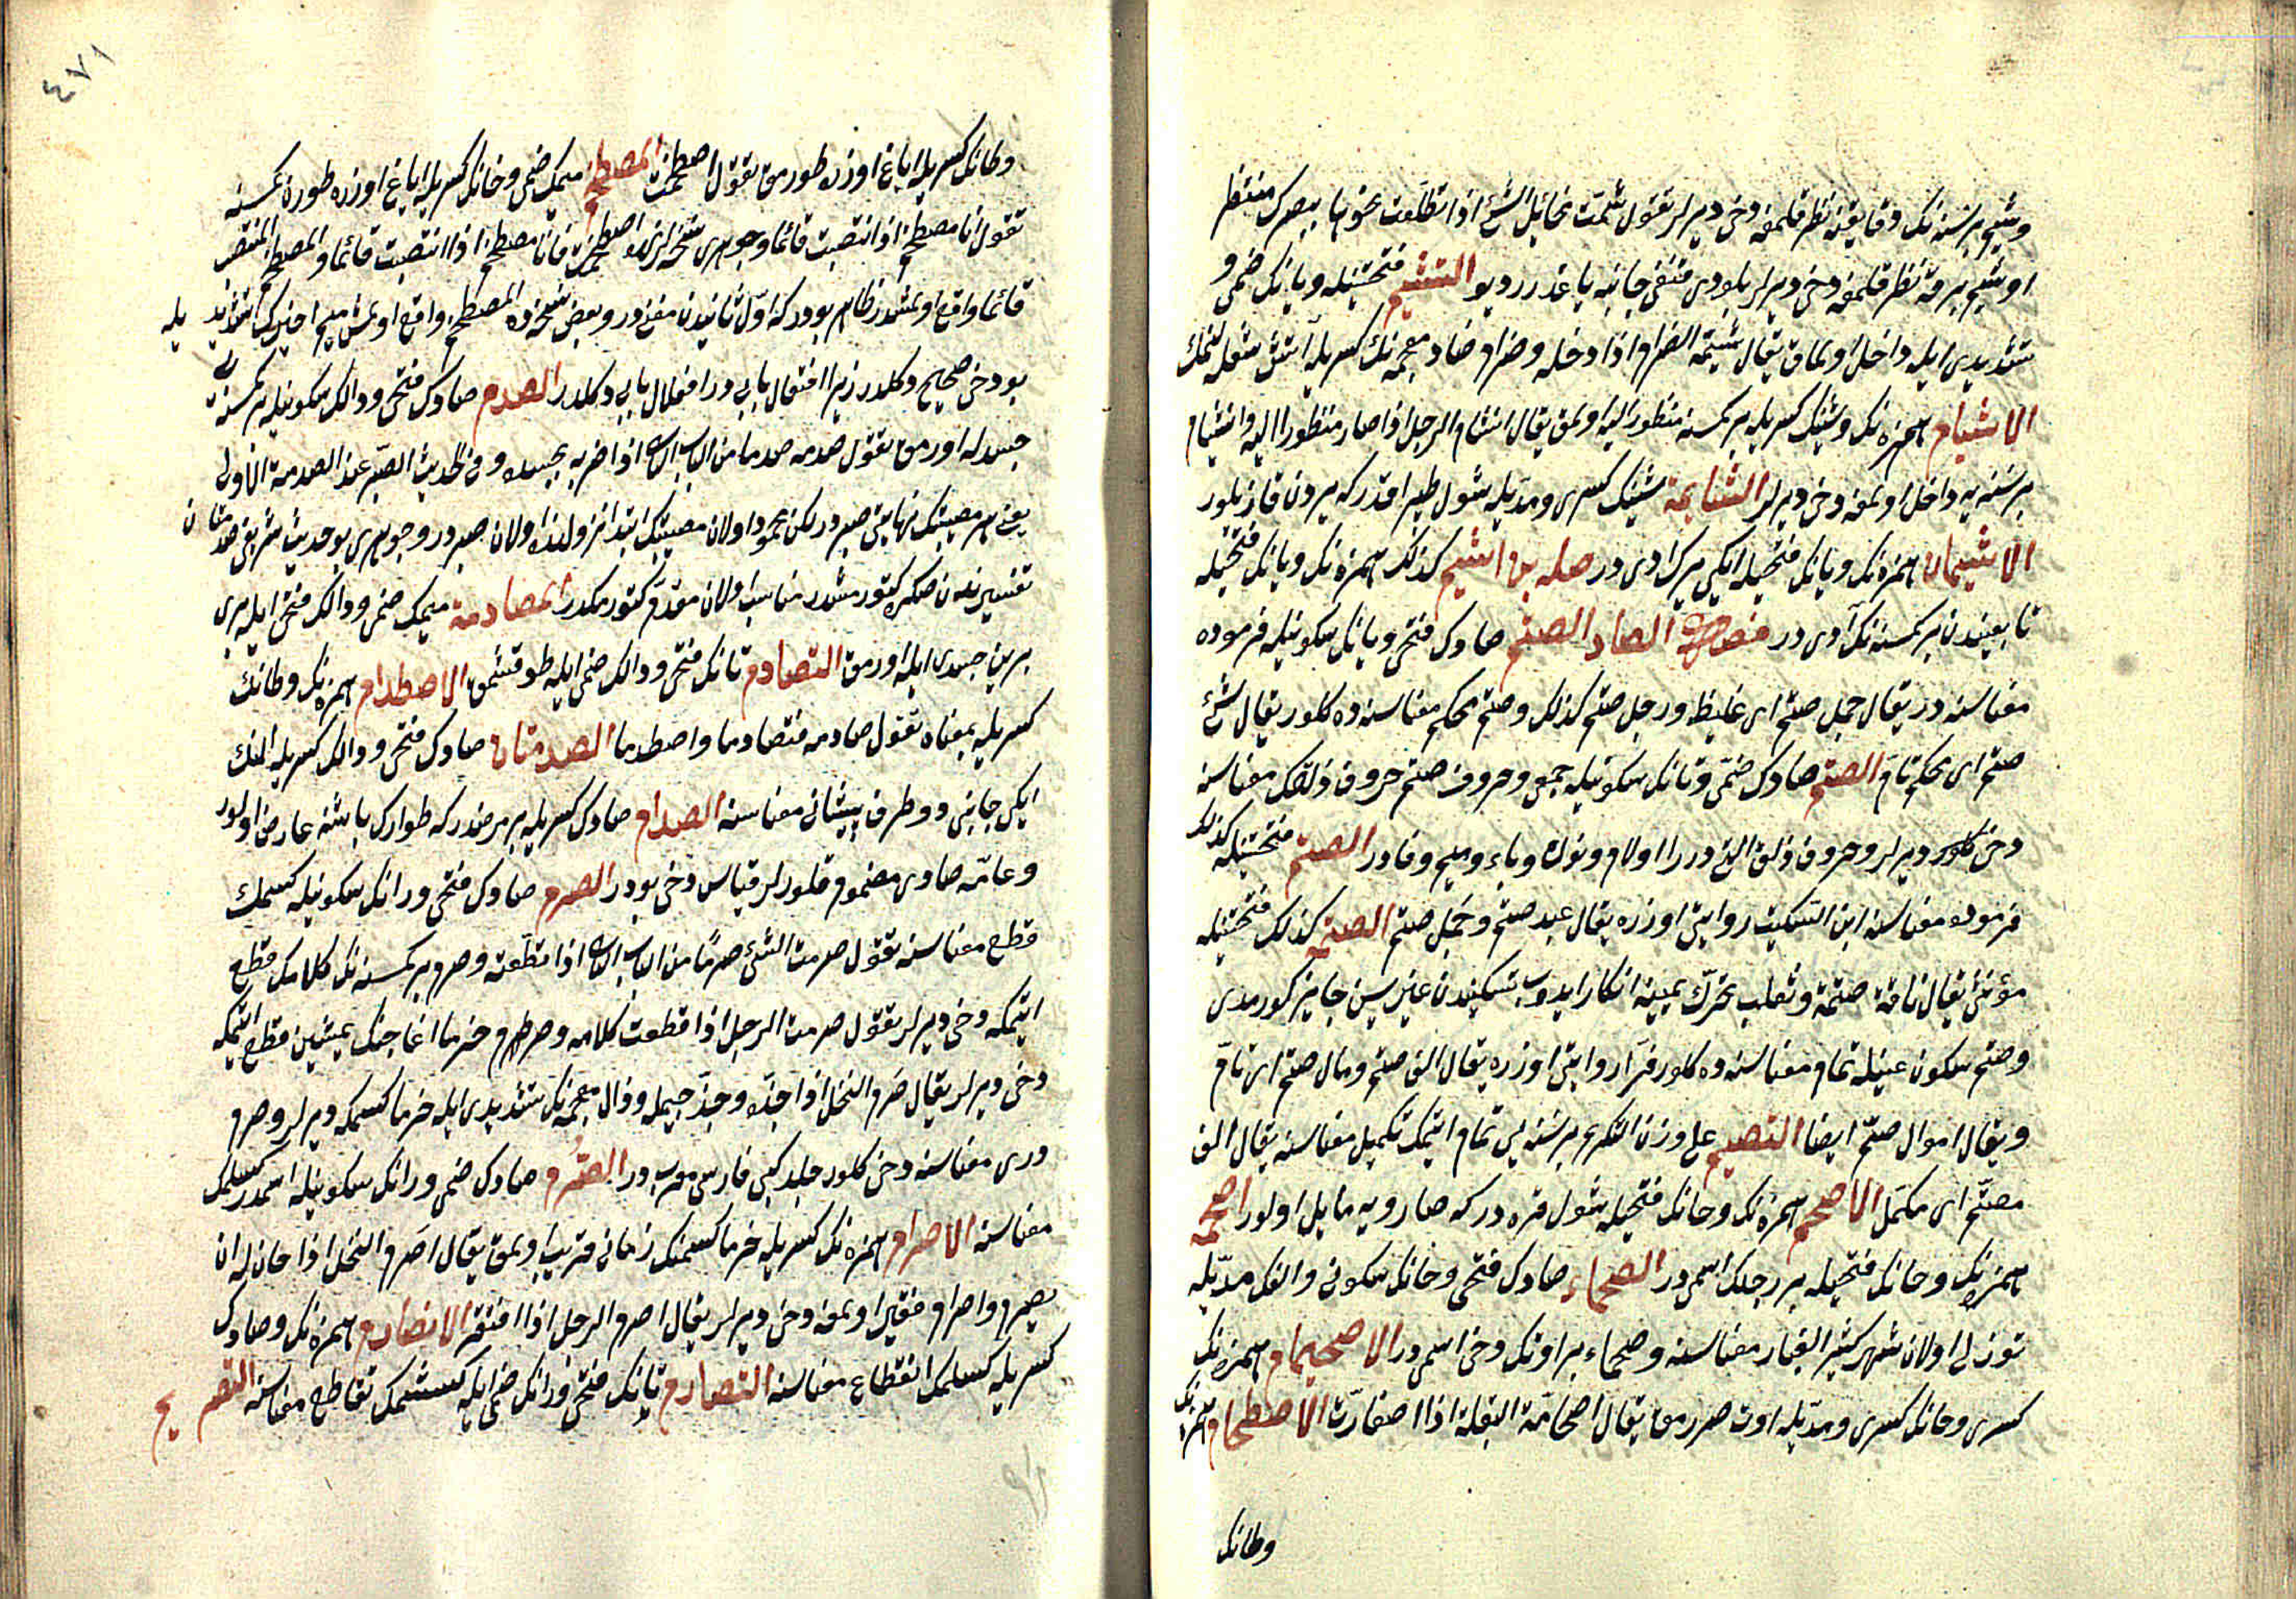 وشیم بر سنه نك دقایقنه نظر قلمغه دخی دیرلر تقول شمت مخایل الشئ اذا تطلعت نحوها ببصرك منتظرا
اوشیم برقه نظر قلمغه دخی دیرلر بلودی قنغی جانبه یاغدرر دیو التشیم فتحتیله و یانك ضمی و
تشدیدی ایله داخل اولماق یقال تشیمه الضرام اذا دخله وضرام ضاد معجمه نك كسریله آتش شعله لنمك
الانشیام همزه نك وشینك كسریله بر كمسنه منظور الیه اولمق یقال انشام الرجل اذا صار منظورا الیه وانشیام
بر سنه یه داخل اولمغه دخی دیرلر الشیام شینك كسری ومدیله شول طپراقدر كه یردن قازیلور
الاشیمان همزه نك ویانك فتحیله ایكی یرك ادی در صله بن اشیم كذلك همزه نك ویانك فتحیله
تابعیندن بر كمسنه نك آدی در فصل الصاد الصتم صادك فتحی وتانك سكونیله فرموده
معناسنه در یقال جمل صتم ای غلیظ ورجل صتم كذلك وصتم محكم معناسنه ده كلور یقال شئ
صتم ای محكم تام الصتم صادك ضمی وتانك سكونیله جمعی وحروف صتم حروف ذلقك معناسنه
دخی كلور دیرلر وحروف ذلق التی در را ولام ونون وباء ومیم وفا در الصتم فتحتیله كذلك
فرموده معناسنه ابن السكیت روایتی اوزره یقال عبد صتم وجمل صتم الصتمه كذلك فتحتیله
مؤنثی یقال ناقة صتمة وثعلب تحرك عینه انكار ایدوب تسكیندن غیریسن جایز كورمدی
وصتم سكون عینله تمام معناسنه ده كلور فرا روایتی اوزره یقال الف صتم ومال صتم ای تام
ویقال اموال صتم ایضا التصتیم علی وزن التكریم بر سنه یی تمام ایتمك تكمیل معناسنه یقال الف
مصتم ای مكمل الاصحم همزه نك وحانك فتحیله شول قره در كه صارویه مایل اولور اصحمه
همزه نك وحانك فتحیله بر رجلك اسمی در الصحماء صادك فتحی وحانك سكونی والفك مدیله
توزلی اولان شهر كثیر الغبار معناسنه وصحماء بر اوتك دخی اسمی در الاصحیمام همزه نك
كسری وحانك كسری ومدیله اوت صررمق یقال اصحامت البقلة اذا اصفارت الاصطخام همزه نك
وطانك
٤٧١
وطانك كسریله ایاغ اوزره طورمق تقول اصطخمت المصطخم میمك ضمی وخانك كسریله ایاغ اوزره طورن كمسنه
تقول انا مصطخم اذا انتصبت قائما وجوهری نسخه لرنده اصطخمت فانا مصطخم اذا انتصبت قائما والمصطخم المنتصب
قائما واقع اولمشدر ظاهر بودر كه اول ثانیدن مغنی در وبعض نسخه ده المصطخم واقع اولمش میم اخیرك تشدیدیله
بو دخی صحیح دكلدر زیرا افتعال بابی در افعلال بابی دكلدر الصدم صادك فتحی ودالك سكونیله بر كمسنه یه
جسدله اورمق تقول صدمه صدما من الباب الثانی اذا ضربه بجسده وفی الحدیث الصبر عند الصدمة الاولی
یعنی هر مصیبتك نهایتی صبر در لكن محمود اولان مصیبتك ابتدا نزولنده اولان صبر در وجوهری بو حدیث شریفی صدمتان
تفسیرندن صكره كتورمشدر مناسب اولان مقدم كتورمكدر المصادمة میمك ضمی ودالك فتحی ایله بری
برین جسدی ایله اورمق التصادم تانك فتحی ودالك ضمی ایله طوقشمق الاصطدام همزه نك وطانك
كسریله بمعناه تقول صادمه فتصادما واصطدما الصدمتان صادك فتحی ودالك كسریله النك
ایكی جانبی و طرف پیشانی معناسنه الصدام صادك كسریله بر مرضدر كه طوارك باشنه عارض اولور
وعامه صادی مضموم قلورلر قیاس دخی بودر الصرم صادك فتحی ورانك سكونیله كسمك
قطع معناسنه تقول صرمت الشئ صرما من الباب الثانی اذا قطعته وصرم بر كمسنه نك كلامك قطع
ایتمكه دخی دیرلر تقول صرمت الرجل اذا قطعت كلامه وصرم خرما اغاجنك یمیشین قطع ایتمكه
دخی دیرلر یقال صرم النخل اذا جذه وجذ جیمله وذال معجمه نك تشدیدی ایله خرما كسمكه دیرلر وصرم
دری معناسنه دخی كلور جلد كبی فارسی معرب در الصرم صادك ضمی ورانك سكونیله اسمدر كسلمك
معناسنه الاصرام همزه نك كسریله خرما كسمنك زمانی قریب اولمق یقال اصرم النخل اذا حان له ان
یصرم واصرام فقیر اولمغه دخی دیرلر یقال اصرم الرجل اذا افتقر الانصرام همزه نك وصادك
كسریله كسلمك انقطاع معناسنه التصارم تانك فتحی ورانك ضمی ایله كسشمك تقاطع معناسنه التصریم